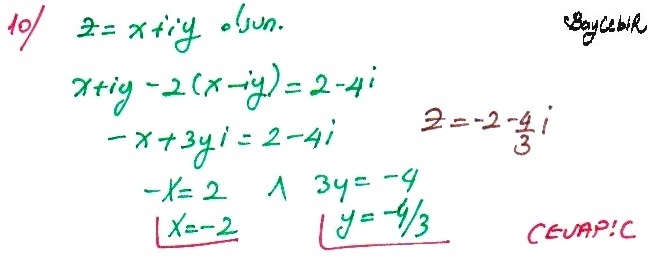 10/ z = x+iy olsun.
BayCebiR
x+iy-2(x-iy)=2-4i
-x+3yi=2-4i
z=-2-4/3 i
-x=2 ∧ 3y=-4
x=-2 y=-4/3
CEVAP:C